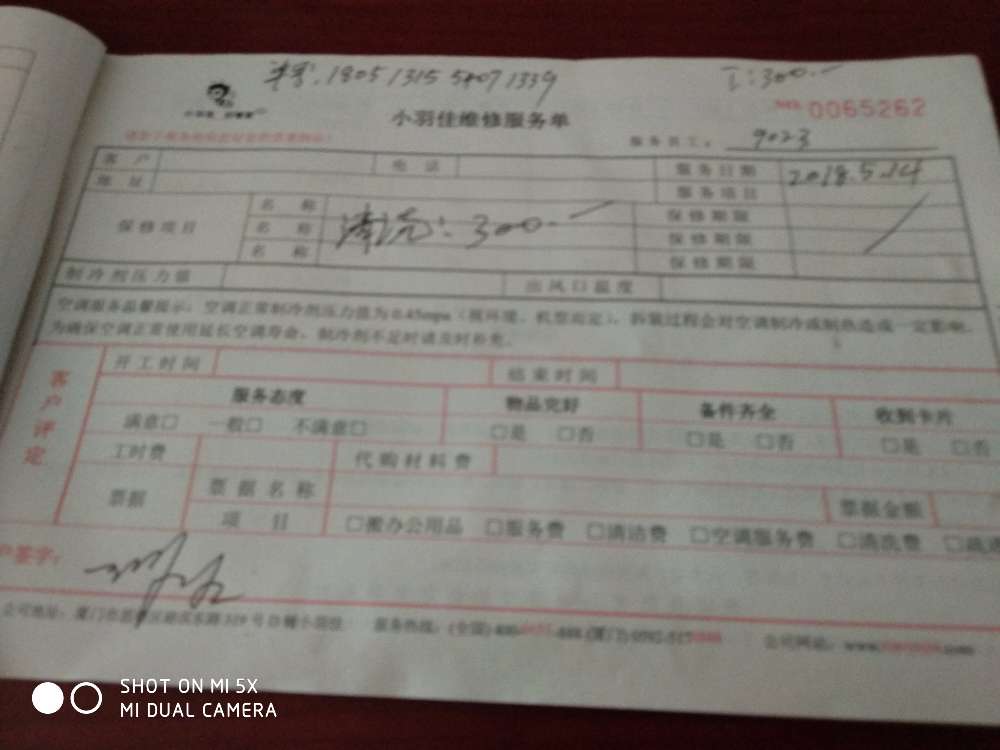 单号:1805 1315 5807 1339
工:300.一
小羽佳维修服务单
NO. 0065262
服务员工: 9023
客 户 电 话 服务日期 2018.5.14
地 址 服务项目
保修项目 名 称 清洗:300.一 保修期限
名 称 保修期限
名 称 保修期限
制冷剂压力值 出风口温度
空调服务温馨提示:空调正常制冷剂压力值为0.45mpa(视环境、机型而定),拆装过程会对空调制冷或制热造成一定影响,
为确保空调正常使用延长空调寿命,制冷剂不足时请及时补充。
客户评定
开工时间 结束时间
服务态度 物品完好 备件齐全 收到卡片
满意□ 一般□ 不满意□ □是 □否 □是 □否 □是 □否
工时费 代购材料费
票据 票据名称 票据金额
项 目 □搬办公用品 □服务费 □清洁费 □空调服务费 □清洗费
户签字:
公司地址:厦门市 服务热线:(全国)400 (厦门)0592-517 公司网站:www. .com
SHOT ON MI 5X
MI DUAL CAMERA